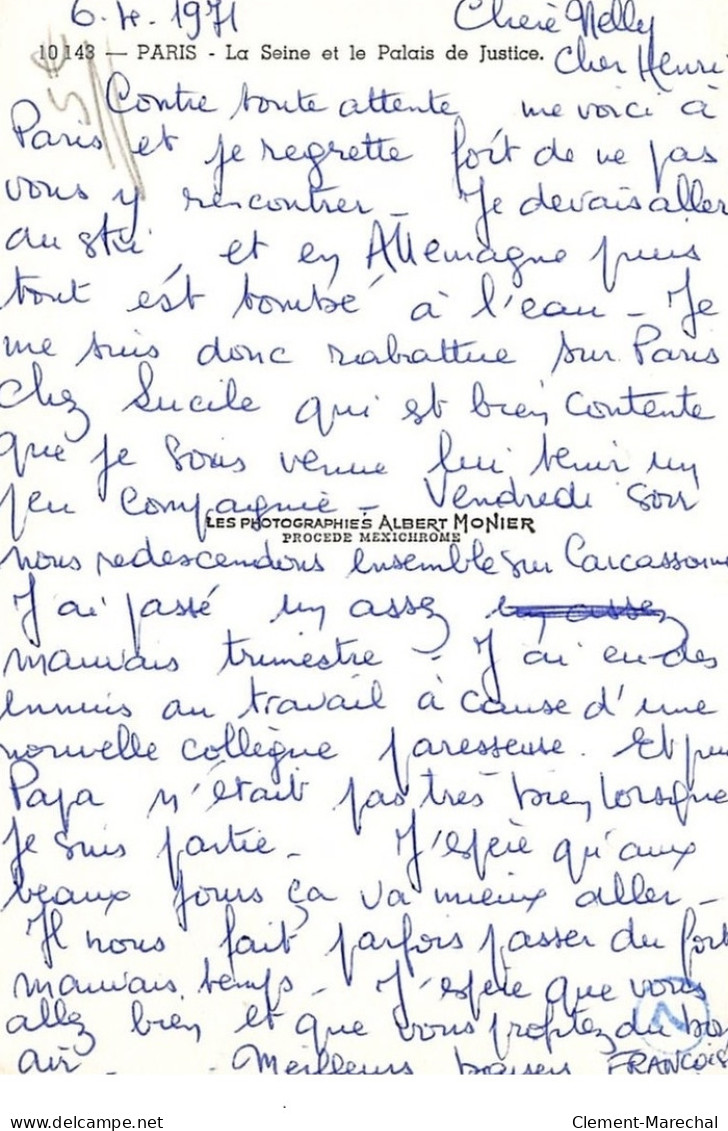 6.4.1971 Chère Nelly
10 143 — PARIS - La Seine et le Palais de Justice.
Cher Henri
Contre toute attente me voici à
Paris et je regrette fort de ne pas
vous y rencontrer - Je devais aller
au ski, et en Allemagne puis
tout est tombé à l'eau - Je
me suis donc rabattue sur Paris
chez Lucile qui est bien contente
que je sois venue lui tenir un
peu compagnie - Vendredi soir
LES PHOTOGRAPHIES ALBERT MONIER
PROCEDE MEXICHROME
nous redescendons ensemble sur Carcassonne
J'ai passé un assez un assez
mauvais trimestre - J'ai eu des
ennuis au travail à cause d'une
nouvelle collègue paresseuse. Et puis
Papa n'était pas très bien lorsque
je suis partie - J'espère qu'aux
beaux jours ça va mieux aller -
Il nous fait parfois passer du fort
mauvais temps - J'espère que vous
allez bien et que vous profitez du bon
air - Meilleurs baisers FRANÇOIS
N
Clement-Marechal